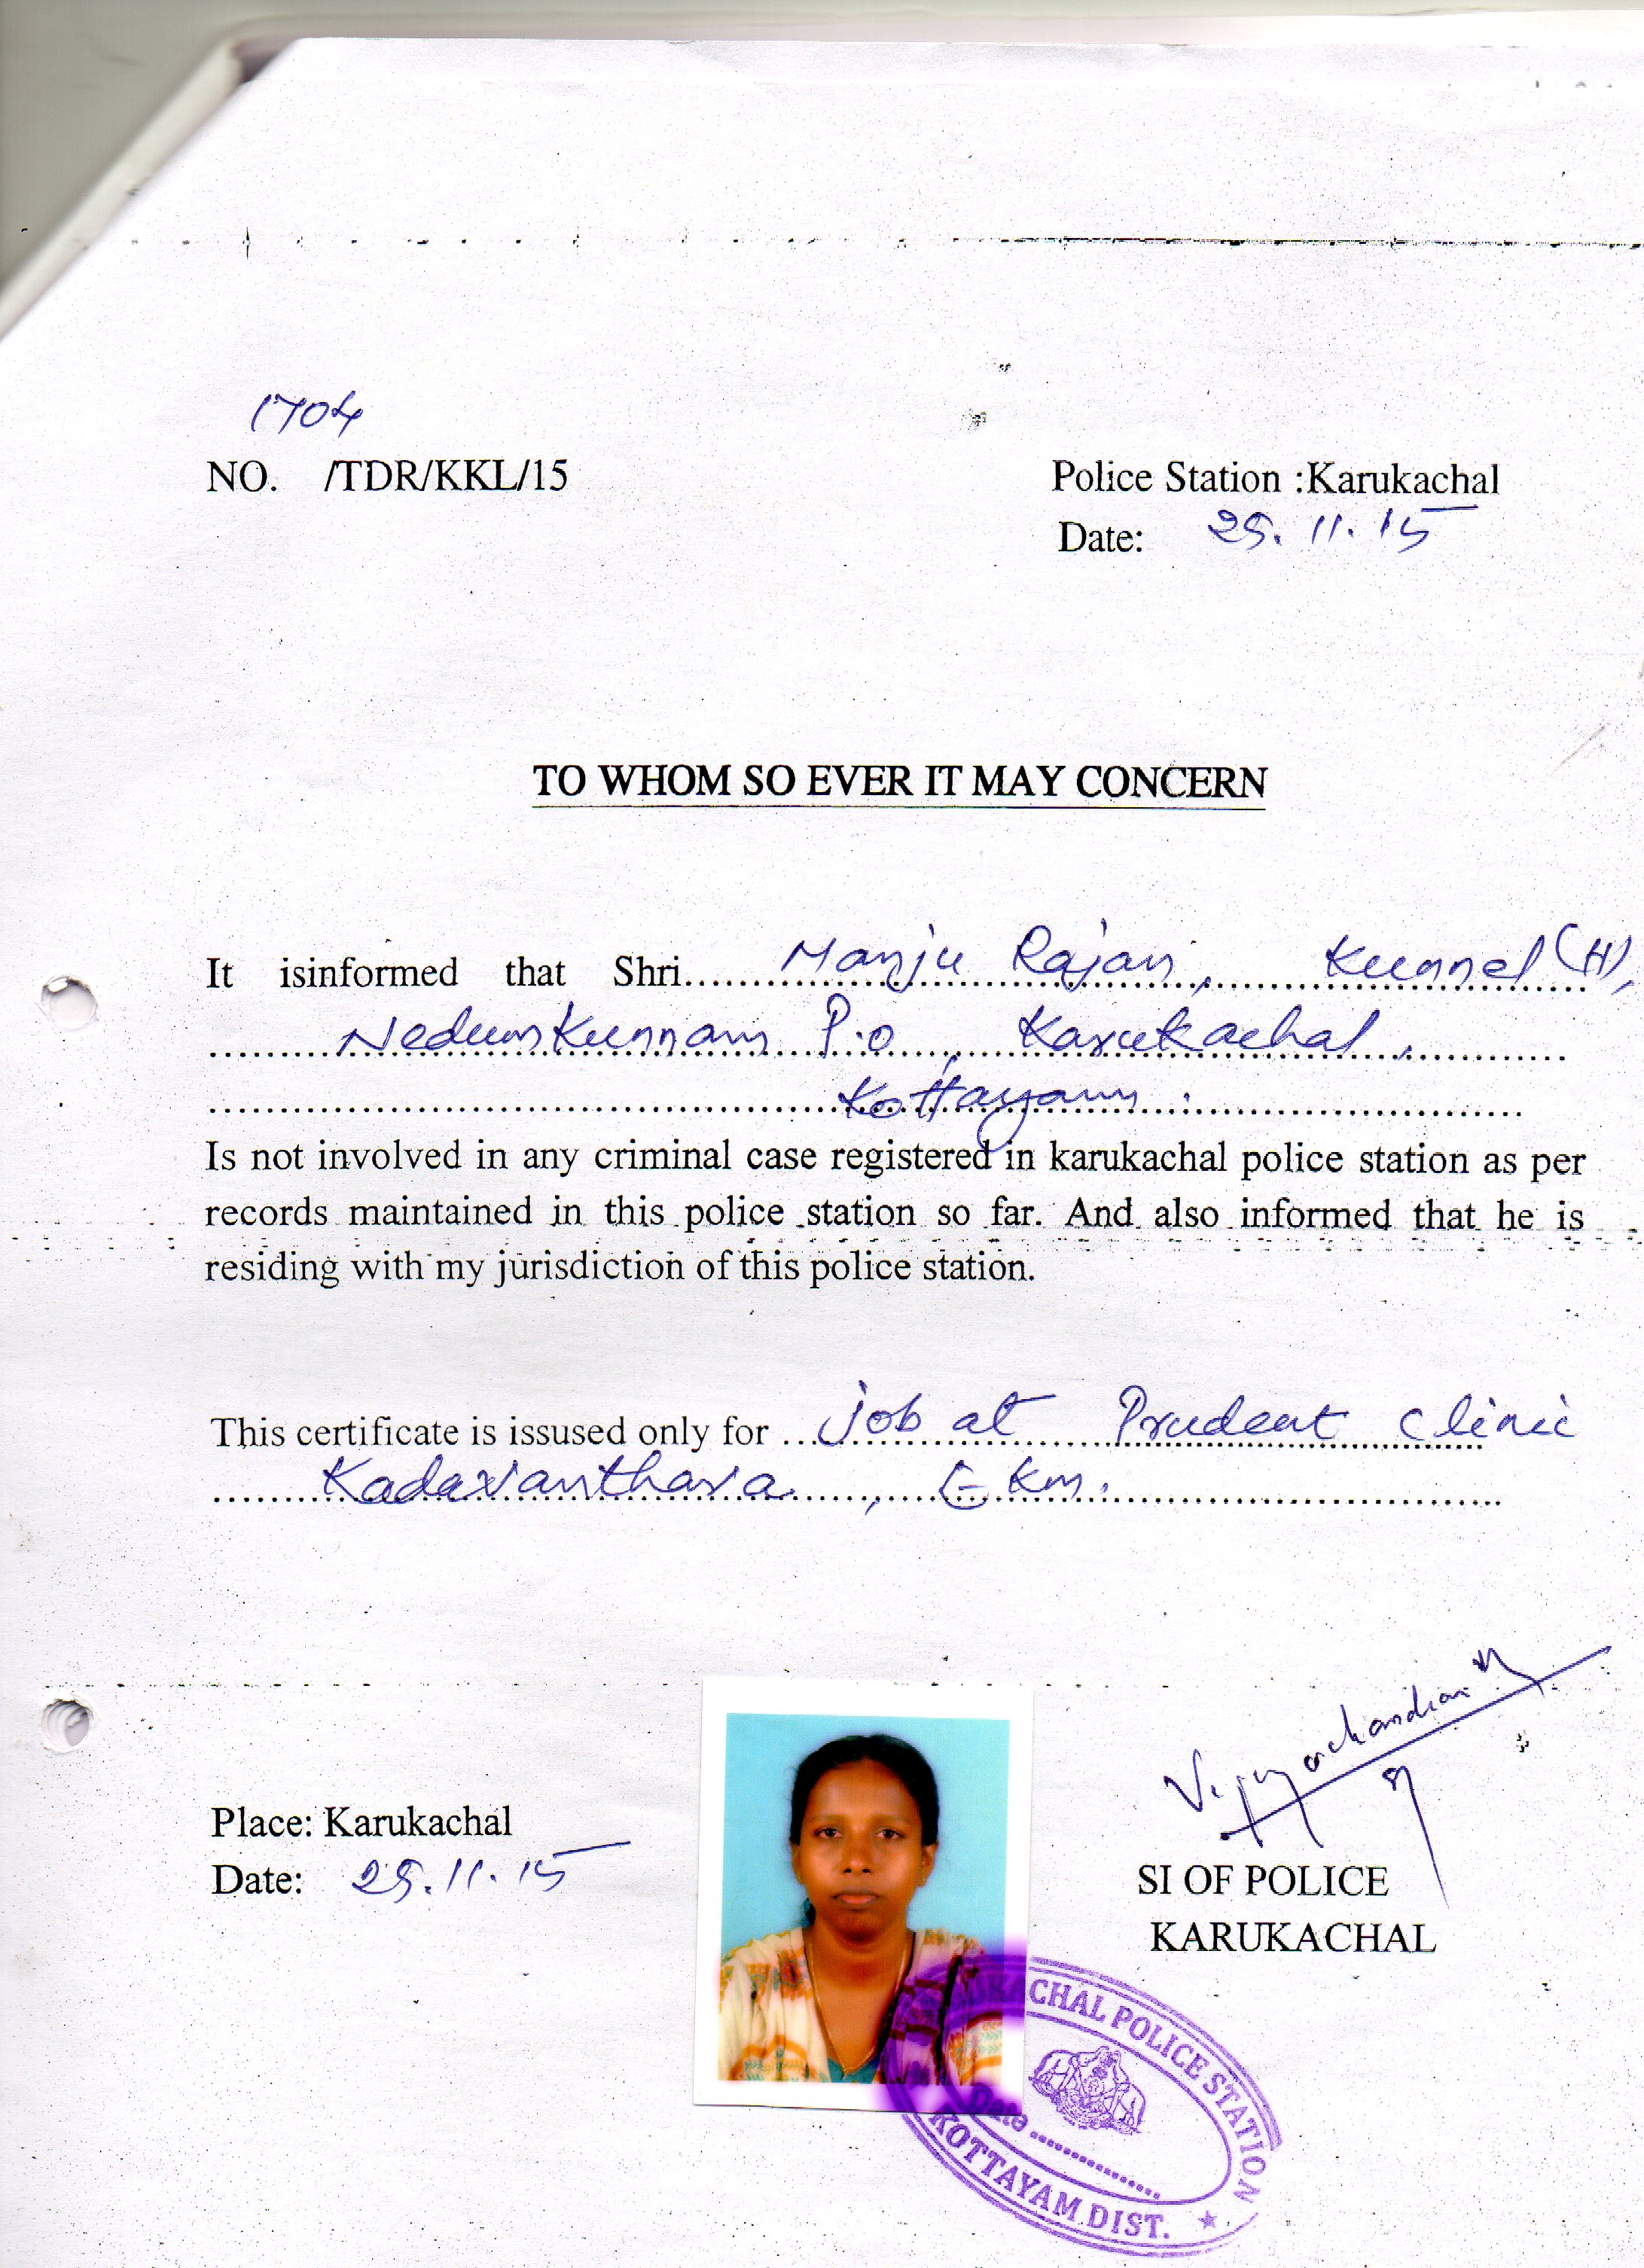 1704
NO. /TDR/KKL/15
Police Station :Karukachal
Date: 25.11.15
TO WHOM SO EVER IT MAY CONCERN
It isinformed that Shri.......Manju Rajan, Kunnel (H),
Nedumkunnam P.O, Karukachal,
Kottayam.
Is not involved in any criminal case registered in karukachal police station as per
records maintained in this police station so far. And also informed that he is
residing with my jurisdiction of this police station.
This certificate is issused only for ...job at Prudent Clinic
Kadavanthara, EKm.
Vijayachandran
Place: Karukachal
Date: 25.11.15
SI OF POLICE
KARUKACHAL
KACHAL POLICE STATION
Date ..................
KOTTAYAM DIST.